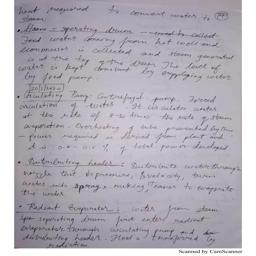 heat required to convert water to
steam.
Steam - seperating drum - used to collect
feed water coming from hot well and
economiser is collected and steam generated
is at the top of the drum. The level of
water is kept constant by supplying water
by feed pump.
Circulating Pump: Centrifugal pump. Forced
circulation of water. It circulates water
at the rate of 8-10 times the rate of steam
evaporation. Overheating of tube prevented by this
power required is from plant
it is 0.4 - 0.8 % of total power developed
Distributing header: Distribute water through
nozzle that
water into making easier to evaporate
the water.
Radiant Evaporator: water from steam
seperating drum first enter radiant
evaporator through circulating pump and
distributing header. Heat is transferred by
radiation.
Scanned by CamScanner